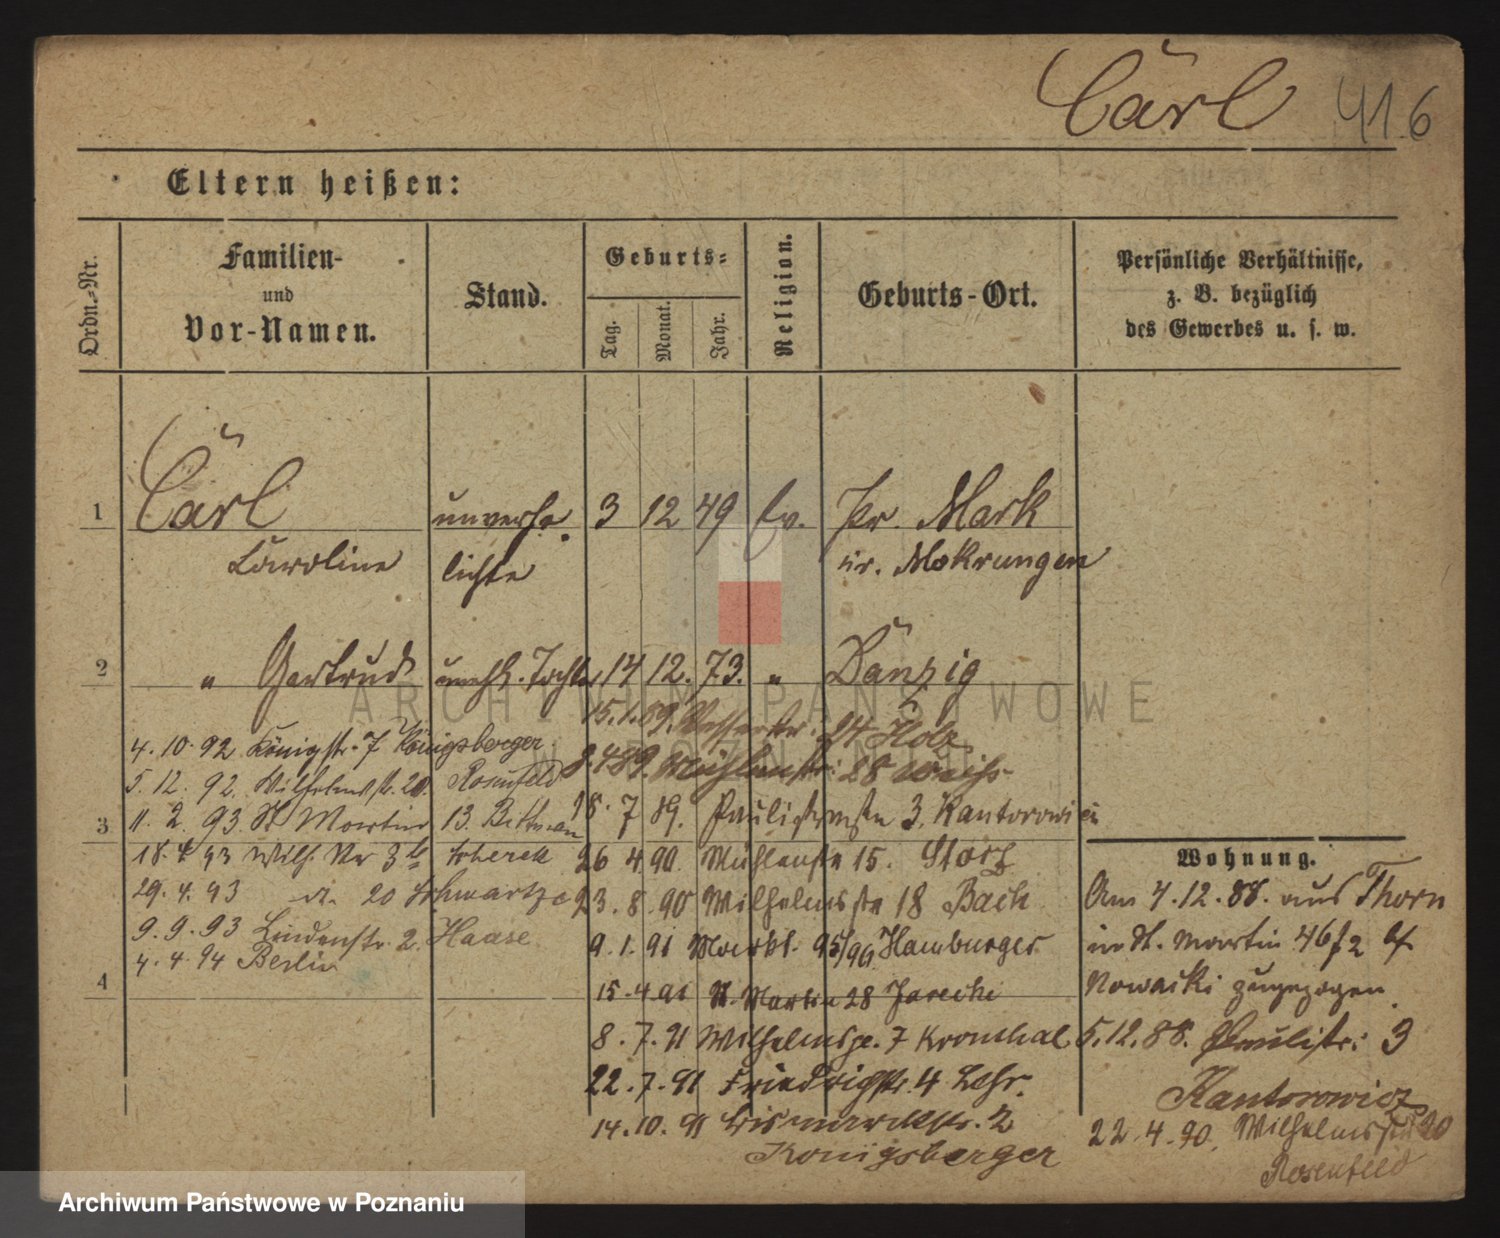 Carl 416
Eltern heißen:
Ordn.-Nr.
Familien-
und
Vor-Namen.
Stand.
Geburts-
Tag.
Monat.
Jahr.
Religion.
Geburts-Ort.
Persönliche Verhältnisse,
z. B. bezüglich
des Gewerbes u. s. w.
1 Carl unverhe. 3 12 49 Ev. Pr. Mark
Caroline lichte Kr. Mokrungen
2 " Gertrud unehl. Tochter 14 12. 73. " Danzig
15.1.89. 24 Holz
4. 10. 92 Königstr. 7 Königsberger
5. 12. 92. Wilhelmstr. 20. Rosenfeld
11. 2. 93. St Martin 13. Bittman
3
18. 4 93 Wilh. 3
29. 4. 93 20 Schwartze
9. 9. 93 Lindenstr. 2. Haase
4. 4. 94 Berlin
4
3.4 89. Mühlenstr. 28 Weiss
18. 7 89. Paulikirchstr 3. Kantorowicz
26 4. 90. Mühlenstr 15. Storz
23. 8. 90 Wilhelmsstr 18 Bach
9. 1. 91 Markt. 95/96 Hamburger
15. 4 91 St. Martin 28 Jarecki
8. 7. 91 Wilhelmspl. 7 Kronthal
22. 7. 91 Friedrichstr. 4 Lehr.
14. 10. 91 Bismarckstr. 2
Königsberger
Wohnung.
Am 4. 12. 88. aus Thorn
in St. Martin 46/2 bf
Nowacki zugezogen
5. 12. 88. Paulistr. 3
Kantorowicz
22. 4. 90. Wilhelmsstr 20
Rosenfeld
ARCHIWUM PAŃSTWOWE
W POZNANIU
Archiwum Państwowe w Poznaniu